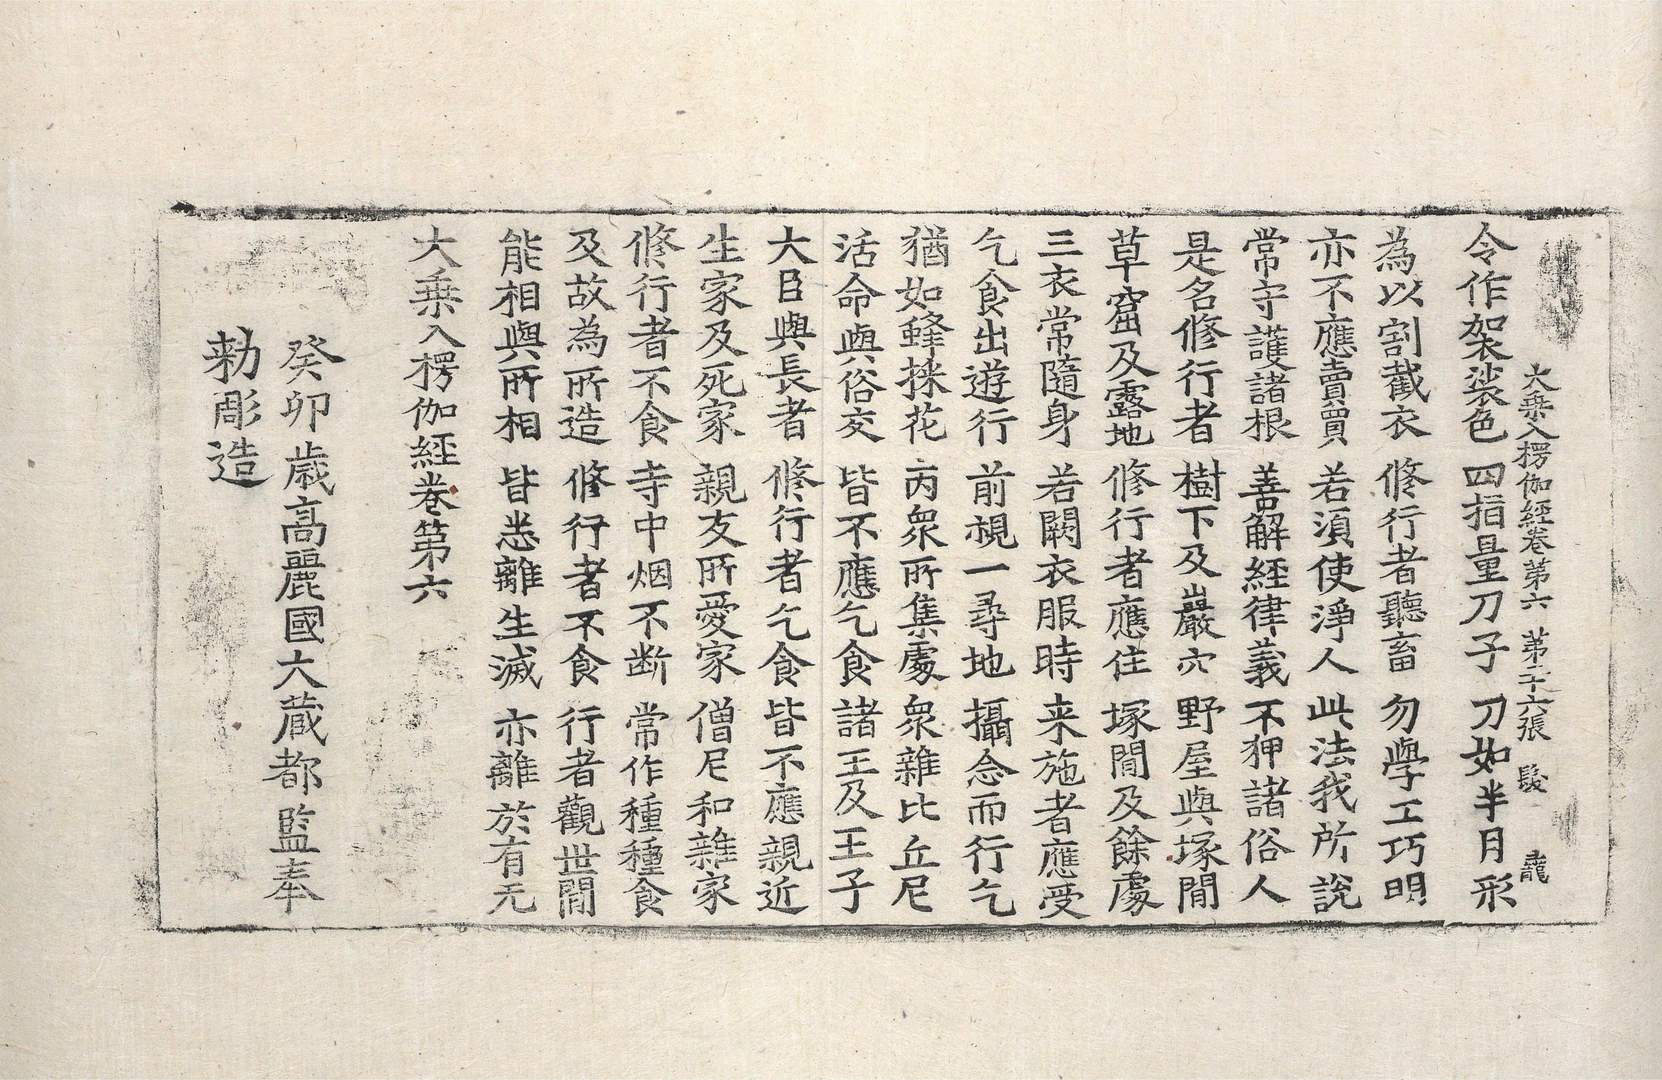 大乘入楞伽經卷第六 第二十六張 髮 龍
令作袈裟色 四指量刀子 刀如半月形
為以割截衣 修行者聽畜 勿學工巧明
亦不應賣買 若須使淨人 此法我所說
常守護諸根 善解經律義 不狎諸俗人
是名修行者 樹下及巖穴 野屋與塚間
草窟及露地 修行者應住 塚間及餘處
三衣常隨身 若闕衣服時 来施者應受
乞食出遊行 前視一尋地 攝念而行乞
猶如蜂採花 丙眾所集處 眾雜比丘尼
活命與俗交 皆不應乞食 諸王及王子
大臣與長者 修行者乞食 皆不應親近
生家及死家 親友所愛家 僧尼和雜家
修行者不食 寺中烟不断 常作種種食
及故為所造 修行者不食 行者觀世間
能相與所相 皆悉離生滅 亦離於有无
大乘入楞伽經卷第六
癸卯歳高麗國大藏都監奉
勅彫造